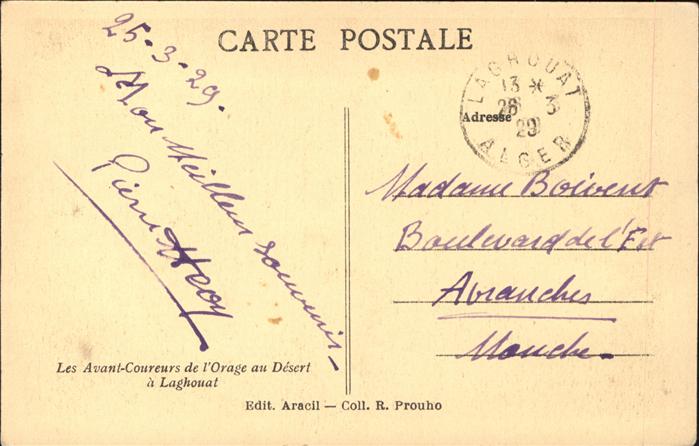 CARTE POSTALE
25-3-29.
Mon Meilleur souvenir-
Pierre
LAGHOUAT
13 *
26 3
29
ALGER
Adresse
Madame Boivent
Boulevard de l'Est
Avranches
Manche.
Les Avant-Coureurs de l'Orage au Désert
à Laghouat
Edit. Aracil — Coll. R. Prouho